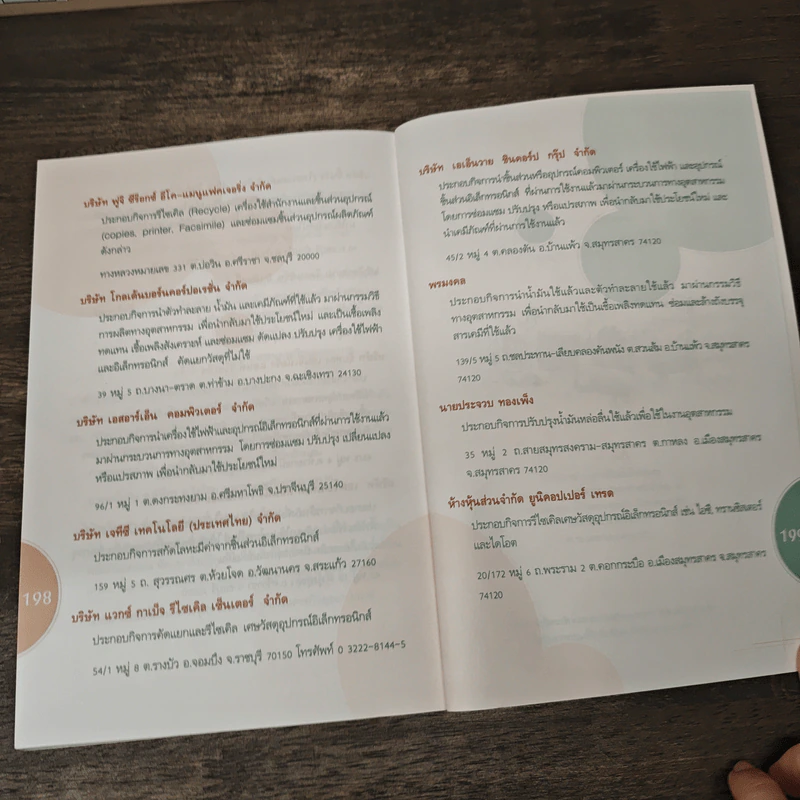 บริษัท ฟูจิ ซีร็อกซ์ อีโค-แมนูแฟคเจอริ่ง จำกัด
ประกอบกิจการรีไซเคิล (Recycle) เครื่องใช้สำนักงานและชิ้นส่วนอุปกรณ์
(copies, printer, Facsimile) และซ่อมแซมชิ้นส่วนอุปกรณ์ผลิตภัณฑ์
ดังกล่าว
ทางหลวงหมายเลข 331 ต.บ่อวิน อ.ศรีราชา จ.ชลบุรี 20000
บริษัท โกลเด้นบอร์นคอร์ปอเรชั่น จำกัด
ประกอบกิจการนำตัวทำละลาย น้ำมัน และเคมีภัณฑ์ที่ใช้แล้ว มาผ่านกรรมวิธี
การผลิตทางอุตสาหกรรม เพื่อนำกลับมาใช้ประโยชน์ใหม่ และเป็นเชื้อเพลิง
ทดแทน เชื้อเพลิงสังเคราะห์ และซ่อมแซม ดัดแปลง ปรับปรุง เครื่องใช้ไฟฟ้า
และอิเล็กทรอนิกส์ คัดแยกวัสดุที่ไม่ใช้
39 หมู่ 5 ถ.บางนา-ตราด ต.ท่าข้าม อ.บางปะกง จ.ฉะเชิงเทรา 24130
บริษัท เอสอาร์เอ็น คอมพิวเตอร์ จำกัด
ประกอบกิจการนำเครื่องใช้ไฟฟ้าและอุปกรณ์อิเล็กทรอนิกส์ที่ผ่านการใช้งานแล้ว
มาผ่านกระบวนการทางอุตสาหกรรม โดยการซ่อมแซม ปรับปรุง เปลี่ยนแปลง
หรือแปรสภาพ เพื่อนำกลับมาใช้ประโยชน์ใหม่
96/1 หมู่ 1 ต.ดงกระทงยาม อ.ศรีมหาโพธิ จ.ปราจีนบุรี 25140
บริษัท เจทีซี เทคโนโลยี (ประเทศไทย) จำกัด
ประกอบกิจการสกัดโลหะมีค่าจากชิ้นส่วนอิเล็กทรอนิกส์
159 หมู่ 5 ถ. สุวรรณศร ต.ห้วยโจด อ.วัฒนานคร จ.สระแก้ว 27160
บริษัท แวกซ์ กาเบ็จ รีไซเคิล เซ็นเตอร์ จำกัด
ประกอบกิจการคัดแยกและรีไซเคิล เศษวัสดุอุปกรณ์อิเล็กทรอนิกส์
54/1 หมู่ 8 ต.รางบัว อ.จอมบึง จ.ราชบุรี 70150 โทรศัพท์ 0 3222-8144-5
198
บริษัท เอเอ็นวาย ซินคอร์ป กรุ๊ป จำกัด
ประกอบกิจการนำชิ้นส่วนหรืออุปกรณ์คอมพิวเตอร์ เครื่องใช้ไฟฟ้า และอุปกรณ์
ชิ้นส่วนอิเล็กทรอนิกส์ ที่ผ่านการใช้งานแล้วมาผ่านกระบวนการทางอุตสาหกรรม
โดยการซ่อมแซม ปรับปรุง หรือแปรสภาพ เพื่อนำกลับมาใช้ประโยชน์ใหม่ และ
นำเคมีภัณฑ์ที่ผ่านการใช้งานแล้ว
45/2 หมู่ 4 ต.คลองตัน อ.บ้านแพ้ว จ.สมุทรสาคร 74120
พรมงคล
ประกอบกิจการนำน้ำมันใช้แล้วและตัวทำละลายใช้แล้ว มาผ่านกรรมวิธี
ทางอุตสาหกรรม เพื่อนำกลับมาใช้เป็นเชื้อเพลิงทดแทน ซ่อมและล้างถังบรรจุ
สารเคมีที่ใช้แล้ว
139/5 หมู่ 5 ถ.ชลประทาน-เลียบคลองดันพนัง ต.สวนส้ม อ.บ้านแพ้ว จ.สมุทรสาคร
74120
นายประจวบ ทองเพ็ง
ประกอบกิจการปรับปรุงน้ำมันหล่อลื่นใช้แล้วเพื่อใช้ในงานอุตสาหกรรม
35 หมู่ 2 ถ.สายสมุทรสงคราม-สมุทรสาคร ต.กาหลง อ.เมืองสมุทรสาคร
จ.สมุทรสาคร 74120
ห้างหุ้นส่วนจำกัด ยูนิคอปเปอร์ เทรด
ประกอบกิจการรีไซเคิลเศษวัสดุอุปกรณ์อิเล็กทรอนิกส์ เช่น ไอซี, ทรานซิสเตอร์
และไดโอด
20/172 หมู่ 6 ถ.พระราม 2 ต.คอกกระบือ อ.เมืองสมุทรสาคร จ.สมุทรสาคร
74120